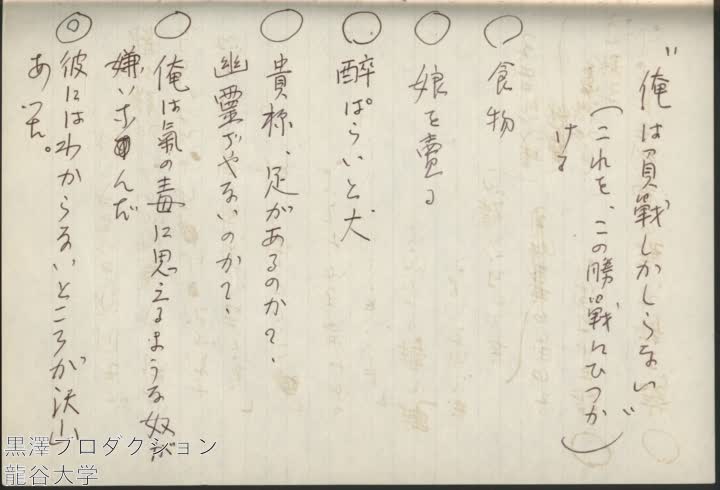 "俺は負戦しかしらない"
(これを、この勝戦にひつか
ける)
○ 食物
○ 娘を賣る
○ 酔ぱらいと犬
○ 貴様、足があるのか?、
幽霊ぢやないのか?、
○ 俺は氣の毒に思えるような奴が
嫌いなんだ
◎ 彼にはわからないところが沢山
あつた。
黒澤プロダクション
龍谷大学